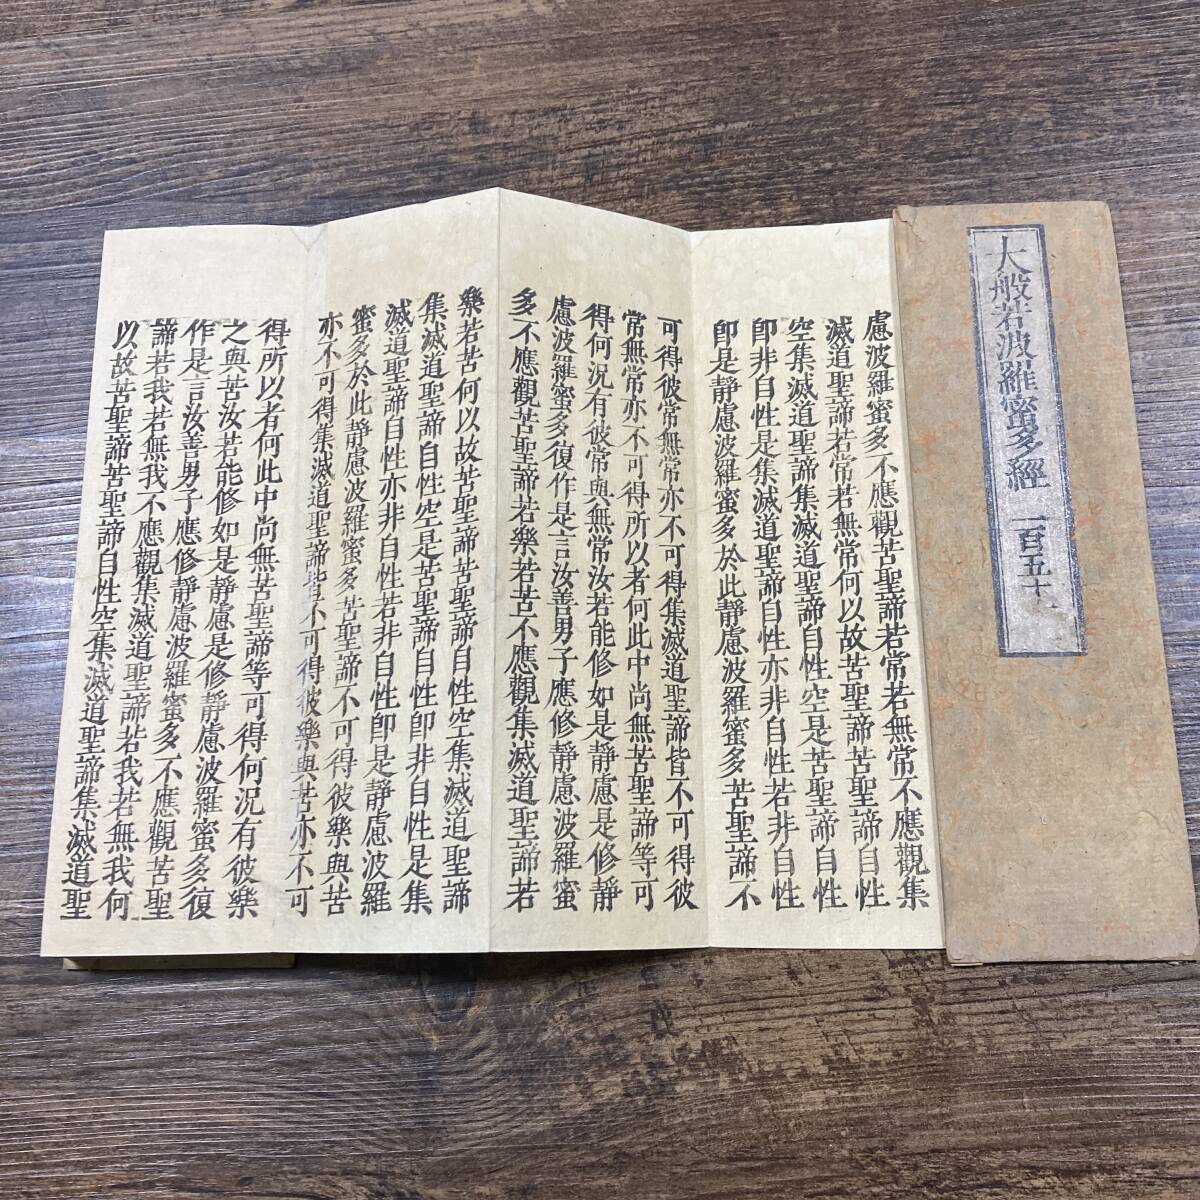 大般若波羅蜜多經 一百五十
慮波羅蜜多不應觀苦聖諦若常若無常不應觀集
滅道聖諦若常若無常何以故苦聖諦苦聖諦自性
空集滅道聖諦集滅道聖諦自性空是苦聖諦自性
卽非自性是集滅道聖諦自性亦非自性若非自性
卽是靜慮波羅蜜多於此靜慮波羅蜜多苦聖諦不
可得彼常無常亦不可得集滅道聖諦皆不可得彼
常無常亦不可得所以者何此中尚無苦聖諦等可
得何況有彼常與無常汝若能修如是靜慮是修靜
慮波羅蜜多復作是言汝善男子應修靜慮波羅蜜
多不應觀苦聖諦若樂若苦不應觀集滅道聖諦若
樂若苦何以故苦聖諦苦聖諦自性空集滅道聖諦
集滅道聖諦自性空是苦聖諦自性卽非自性是集
滅道聖諦自性亦非自性若非自性卽是靜慮波羅
蜜多於此靜慮波羅蜜多苦聖諦不可得彼樂與苦
亦不可得集滅道聖諦皆不可得彼樂與苦亦不可
得所以者何此中尚無苦聖諦等可得何況有彼樂
之與苦汝若能修如是靜慮是修靜慮波羅蜜多復
作是言汝善男子應修靜慮波羅蜜多不應觀苦聖
諦若我若無我不應觀集滅道聖諦若我若無我何
以故苦聖諦苦聖諦自性空集滅道聖諦集滅道聖